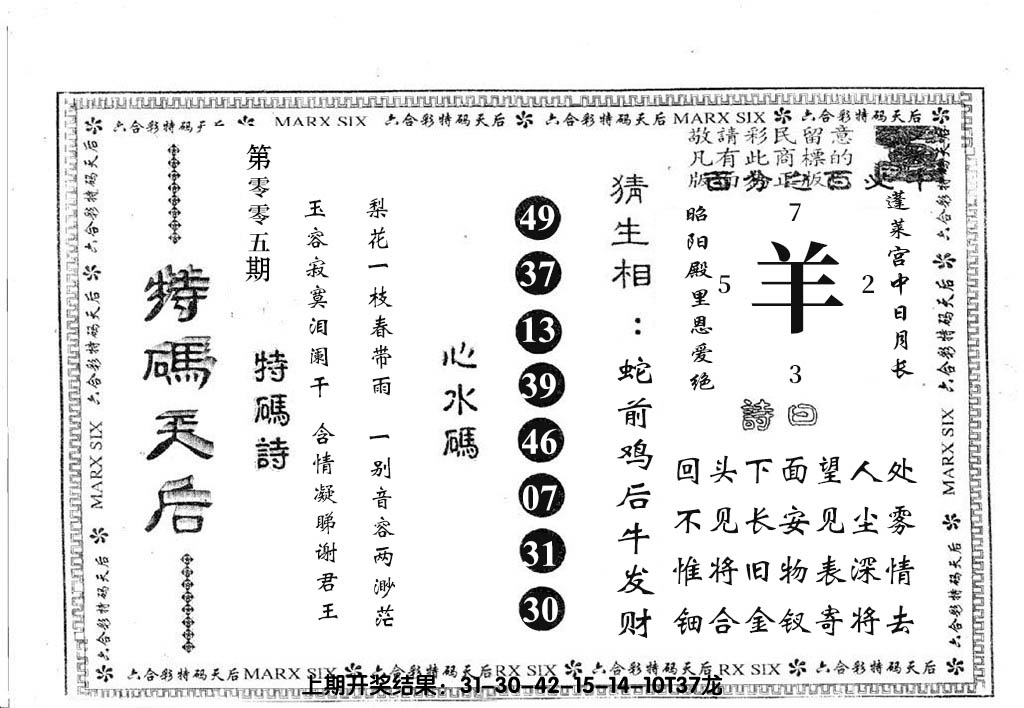 六合彩特码天后 MARX SIX 六合彩特码天后 六合彩特码天后 MARX SIX 六合彩特码天后
敬請彩民留意
凡有此商標的
版面为正版
百分之百
蓬莱宫中日月长
7
5 羊 2
3
昭阳殿里恩爱绝
詩曰
回头下面望人处
不见长安见尘雾
惟将旧物表深情
钿合金钗寄将去
猜生相：蛇前鸡后牛发财
49
37
13
39
46
07
31
30
心水碼
梨花一枝春带雨 一别音容两渺茫
玉容寂寞泪阑干 含情凝睇谢君王
特碼詩
第零零五期
特碼天后
六合彩特码天后 六合彩特码天后 MARX SIX 六合彩特码天后
六合彩特码天后 六合彩特码天后 MARX SIX 六合彩特码天后
六合彩特码天后 MARX SIX 六合彩特码天后 RX SIX 六合彩特码天后 RX SIX 六合彩特码天后
上期开奖结果：31-30-42-15-14-10T37龙